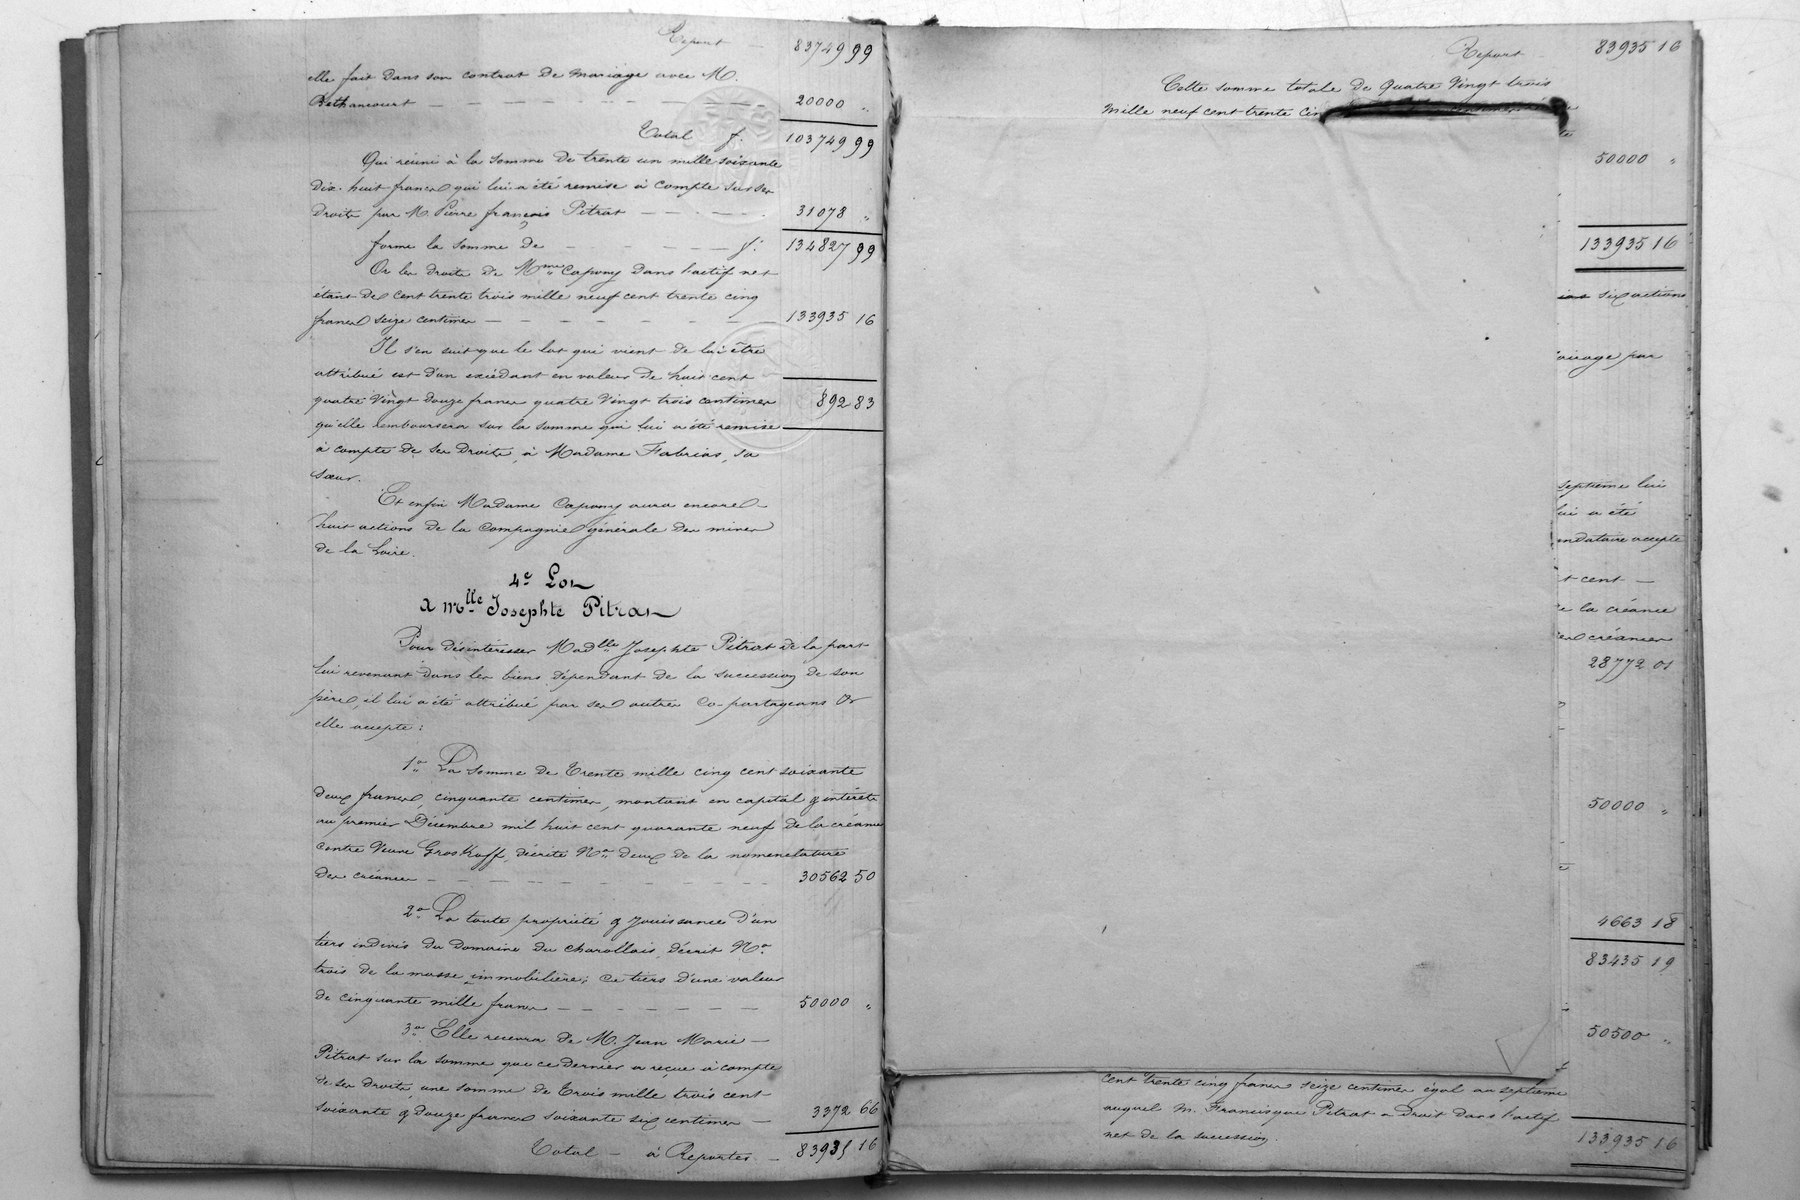 Report — 83749 99
elle fait dans son contrat de mariage avec M.
Bethancourt — 20000 "
Total f. 103749 99
Qui réuni à la somme de trente un mille soixante
dix-huit francs qui lui a été remise à compte sur ses
droits par M. Pierre françois Pitrat — 31078 "
forme la somme de — f. 134827 99
Or les droits de Mme Capony dans l'actif net
étant de cent trente trois mille neuf cent trente cinq
francs seize centimes — 133935 16
Il s'en suit que le lot qui vient de lui être
attribué est d'un excédant en valeur de huit cent
quatre vingt douze francs quatre vingt trois centimes 892 83
qu'elle remboursera sur la somme qui lui a été remise
à compte de ses droits, à Madame Fabrias, sa
sœur.
Et enfin Madame Capony aura encore
huit actions de la Compagnie générale des mines
de la Loire.
4e Lot
à Mlle Josephte Pitrat
Pour désintéresser Madlle Josephte Pitrat de la part
lui revenant dans les biens dépendant de la succession de son
père, il lui a été attribué par ses autres co-partageans &
elle accepte :
1o La somme de Trente mille cinq cent soixante
deux francs, cinquante centimes, montant en capital & intérêts
au premier Décembre mil huit cent quarante neuf de la créance
contre Veuve Groskoff, décrite No deux de la nomenclature
des créances — 30562 50
2o La toute propriété & jouissance d'un
tiers indivis du Domaine du Charollais, décrit No
trois de la masse immobilière; ce tiers d'une valeur
de cinquante mille francs — 50000 "
3o Elle recevra de M. Jean Marie —
Pitrat sur la somme que ce dernier a reçue à compte
de ses droits, une somme de Trois mille trois cent
soixante & douze francs soixante six centimes — 3372 66
Total — à Reporter — 83935 16
Report 83935 16
Cette somme totale de quatre vingt trois
mille neuf cent trente cin
50000 "
133935 16
six actions
par
septième lui
lui a été
mandataire accepte
t cent —
de la créance
créancier
28772 01
50000 "
4663 18
83435 19
50500 "
cent trente cinq francs seize centimes égal au septième
auquel M. Francisque Pitrat a droit dans l'actif
net de la succession. 133935 16